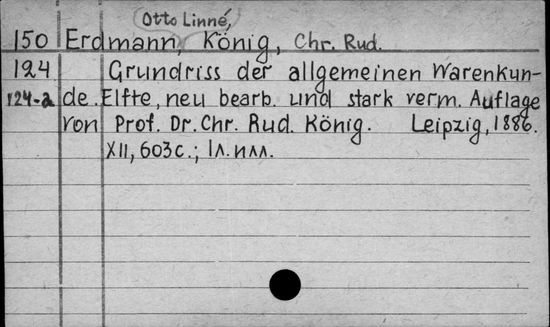 Otto Linné,
150 Erdmann, König, Chr. Rud.
124 Grundriss der allgemeinen Warenkun-
124-a de. Elfte, neu bearb. und stark verm. Auflage
von Prof. Dr. Chr. Rud. König. Leipzig, 1886.
XII, 603 с.; 1 л. илл.